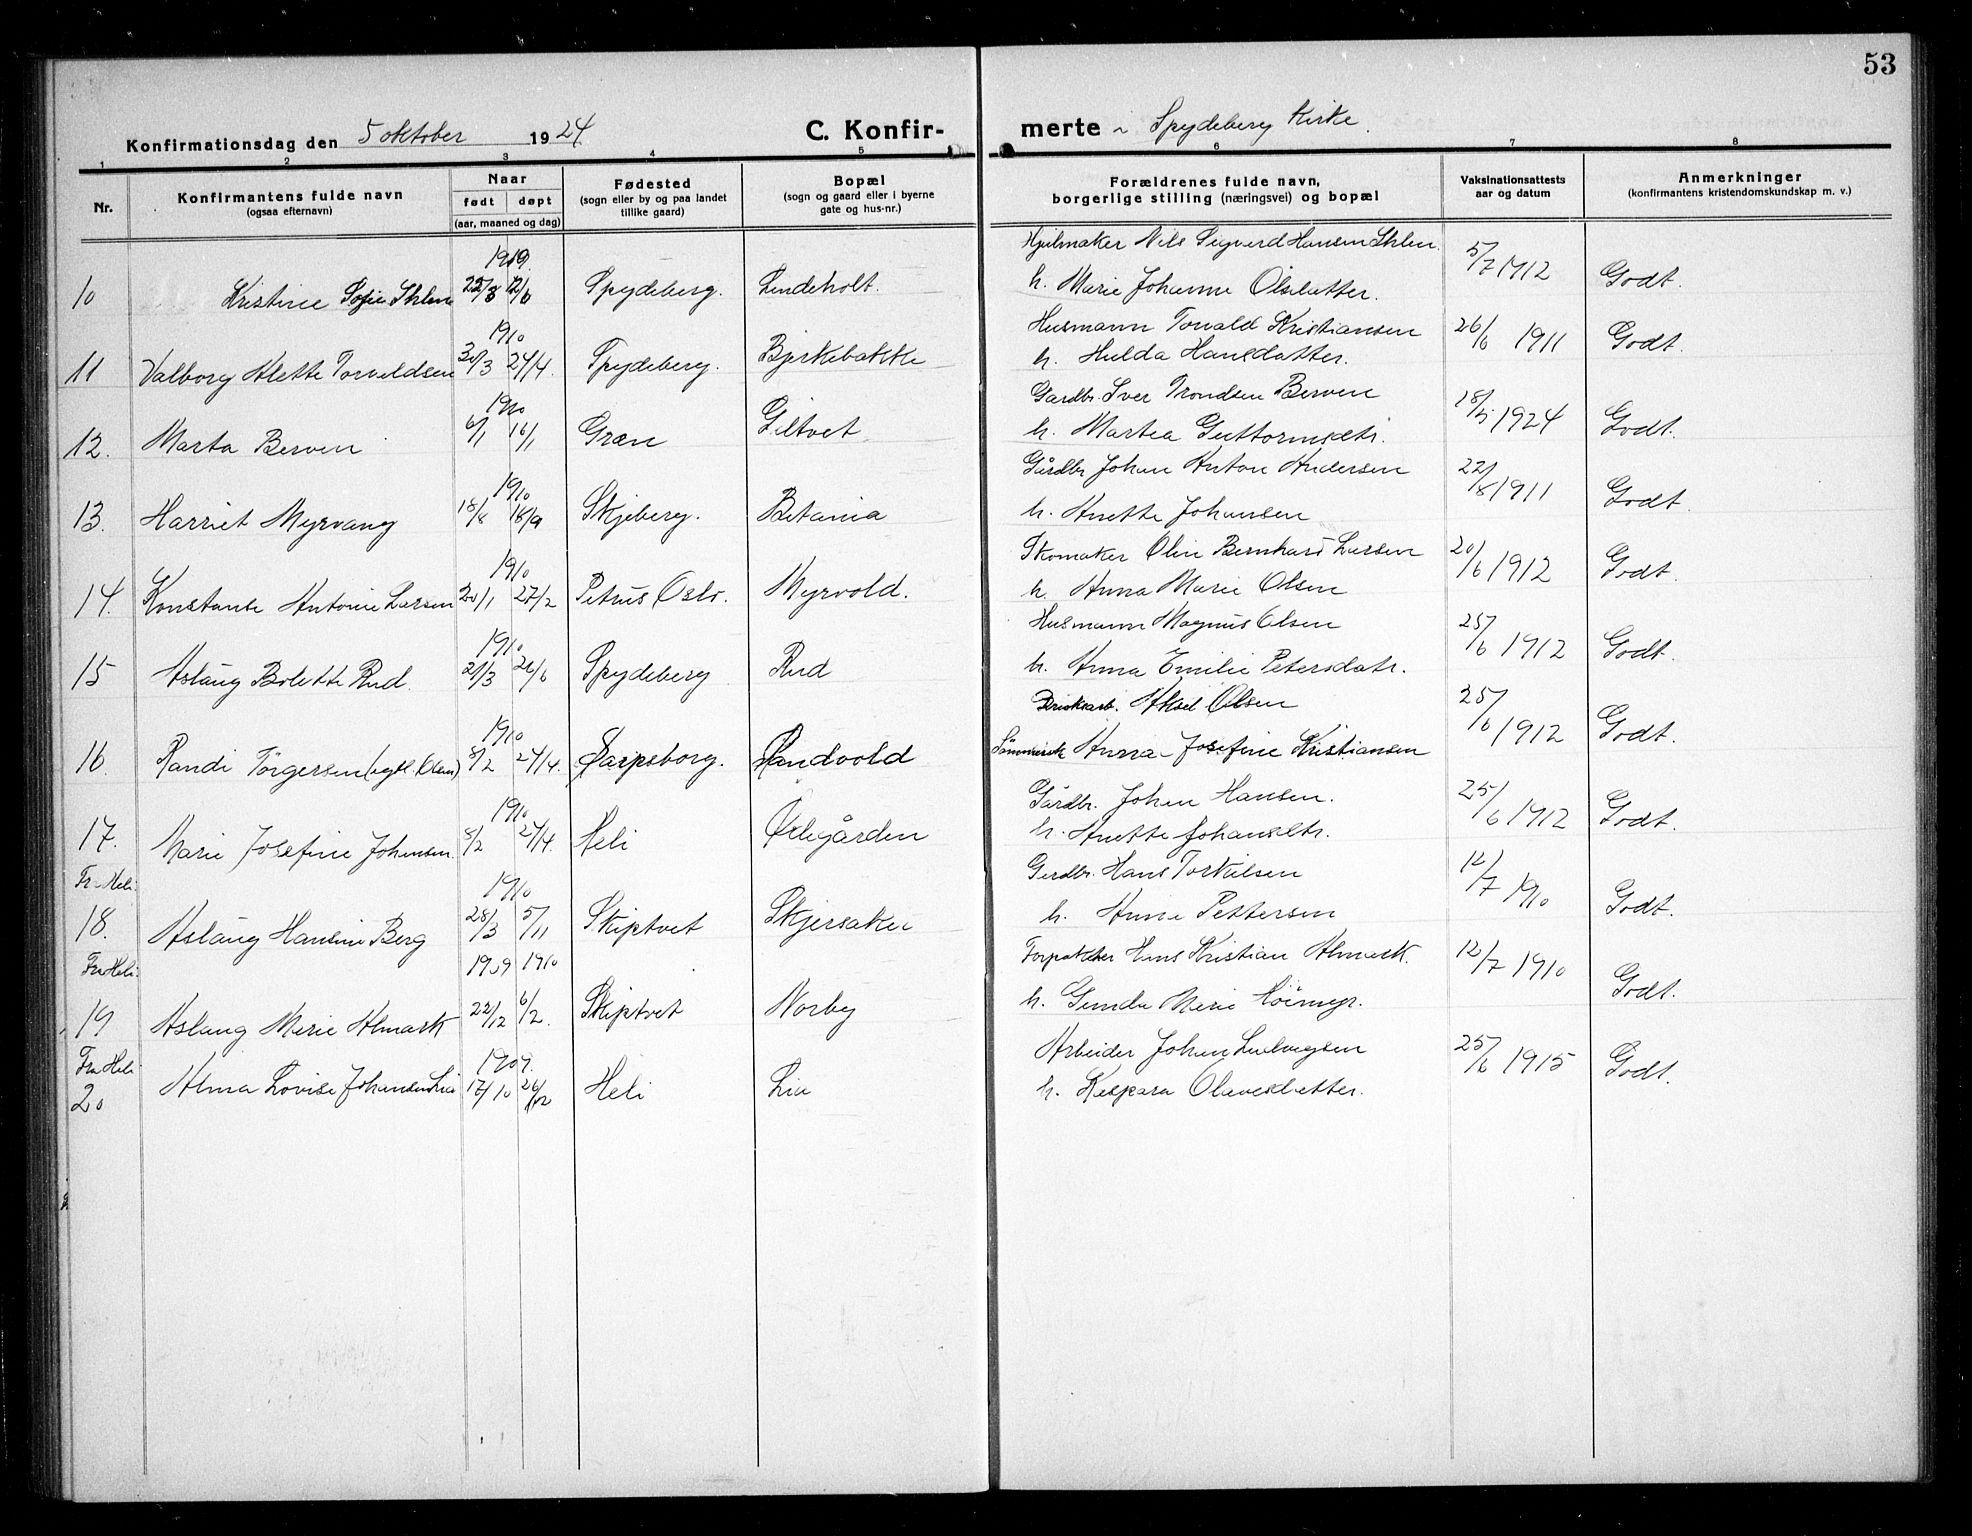 53
Konfirmationsdag den 5 oktober 1924 C. Konfir- merte i Spydeberg Kirke.
1 2 3 4 5 6 7 8
Nr.
Konfirmantens fulde navn
(ogsaa efternavn)
Naar
født døpt
(aar, maaned og dag)
Fødested
(sogn eller by og paa landet
tillike gaard)
Bopæl
(sogn og gaard eller i byerne
gate og hus-nr.)
Forældrenes fulde navn,
borgerlige stilling (næringsvei) og bopæl
Vaksinationsattests
aar og datum
Anmerkninger
(konfirmantens kristendomskundskap m. v.)
Hjulmaker Nils Sigverd Hansen
10 Kristine Sofie 22/3 12/6 Spydeberg. Lindeholt. h. Marie Johanne Olsdatter. 5/7 1912 Godt.
1910 Husmann Torvald Kristiansen
11 Valborg Alette Torvaldsen 30/3 24/4. Spydeberg. Bjrkebakke h. Hulda Hansdatter. 26/6 1911 Godt.
1910 Gardbr. Iver Trondsen Berven
12. Marta Berven 6/1 16/1 Gran Giltvet h. Martea Guttormsdtr. 18/5 1924 Godt.
1910 Gårdbr Johan Anton Andersen
13. Harriet Myrvang 18/8 18/9 Skjeberg. Betania h. Anette Johansen 22/8 1911 Godt.
1910 Skomaker Olin Bernhard Larsen
14. Konstanse Antonie Larsen 20/1 27/2 Petrus Oslo. Myrvold. h. Anna Marie Olsen 20/6 1912 Godt.
1910 Husmann Magnus Olsen
15 Aslaug Bolette Rud. 21/3 26/6 Spydeberg Rud h. Anna Emilie Petersdatr. 25/6 1912 Godt.
1910 Bruksarb. Aksel Olsen
16. Randi Törgersen 8/2 24/4. Sarpsborg. Sandvold Anna Josefine Kristiansen 25/6 1912 Godt.
1910 Gårdbr. Johan Hansen.
17. Marie Josefine Johansen. 8/2 24/4. Heli Ørlegården h. Anette Johansdtr. 25/6 1912 Godt.
Fr. Heli. 1910 Gardbr. Hans Torkilsen
18. Aslaug Hansine Berg 28/3 5/11 Skiptvet Skjersaker h. Anne Pettersen 12/7 1910 Godt.
Fra Heli. 1909 1910 Forpakter Hans Kristian Almark.
19 Aslaug Marie Almark 22/12 6/2. Skiptvet Norby h. Gunda Marie 12/7 1910 Godt.
Fra Heli 1909. Arbeider Johan Ludvigsen
20 Alma Lovise Johansen Lia 17/10 26/12 Heli Lia h. Kaspara Olavesdatter. 25/6 1915 Godt.